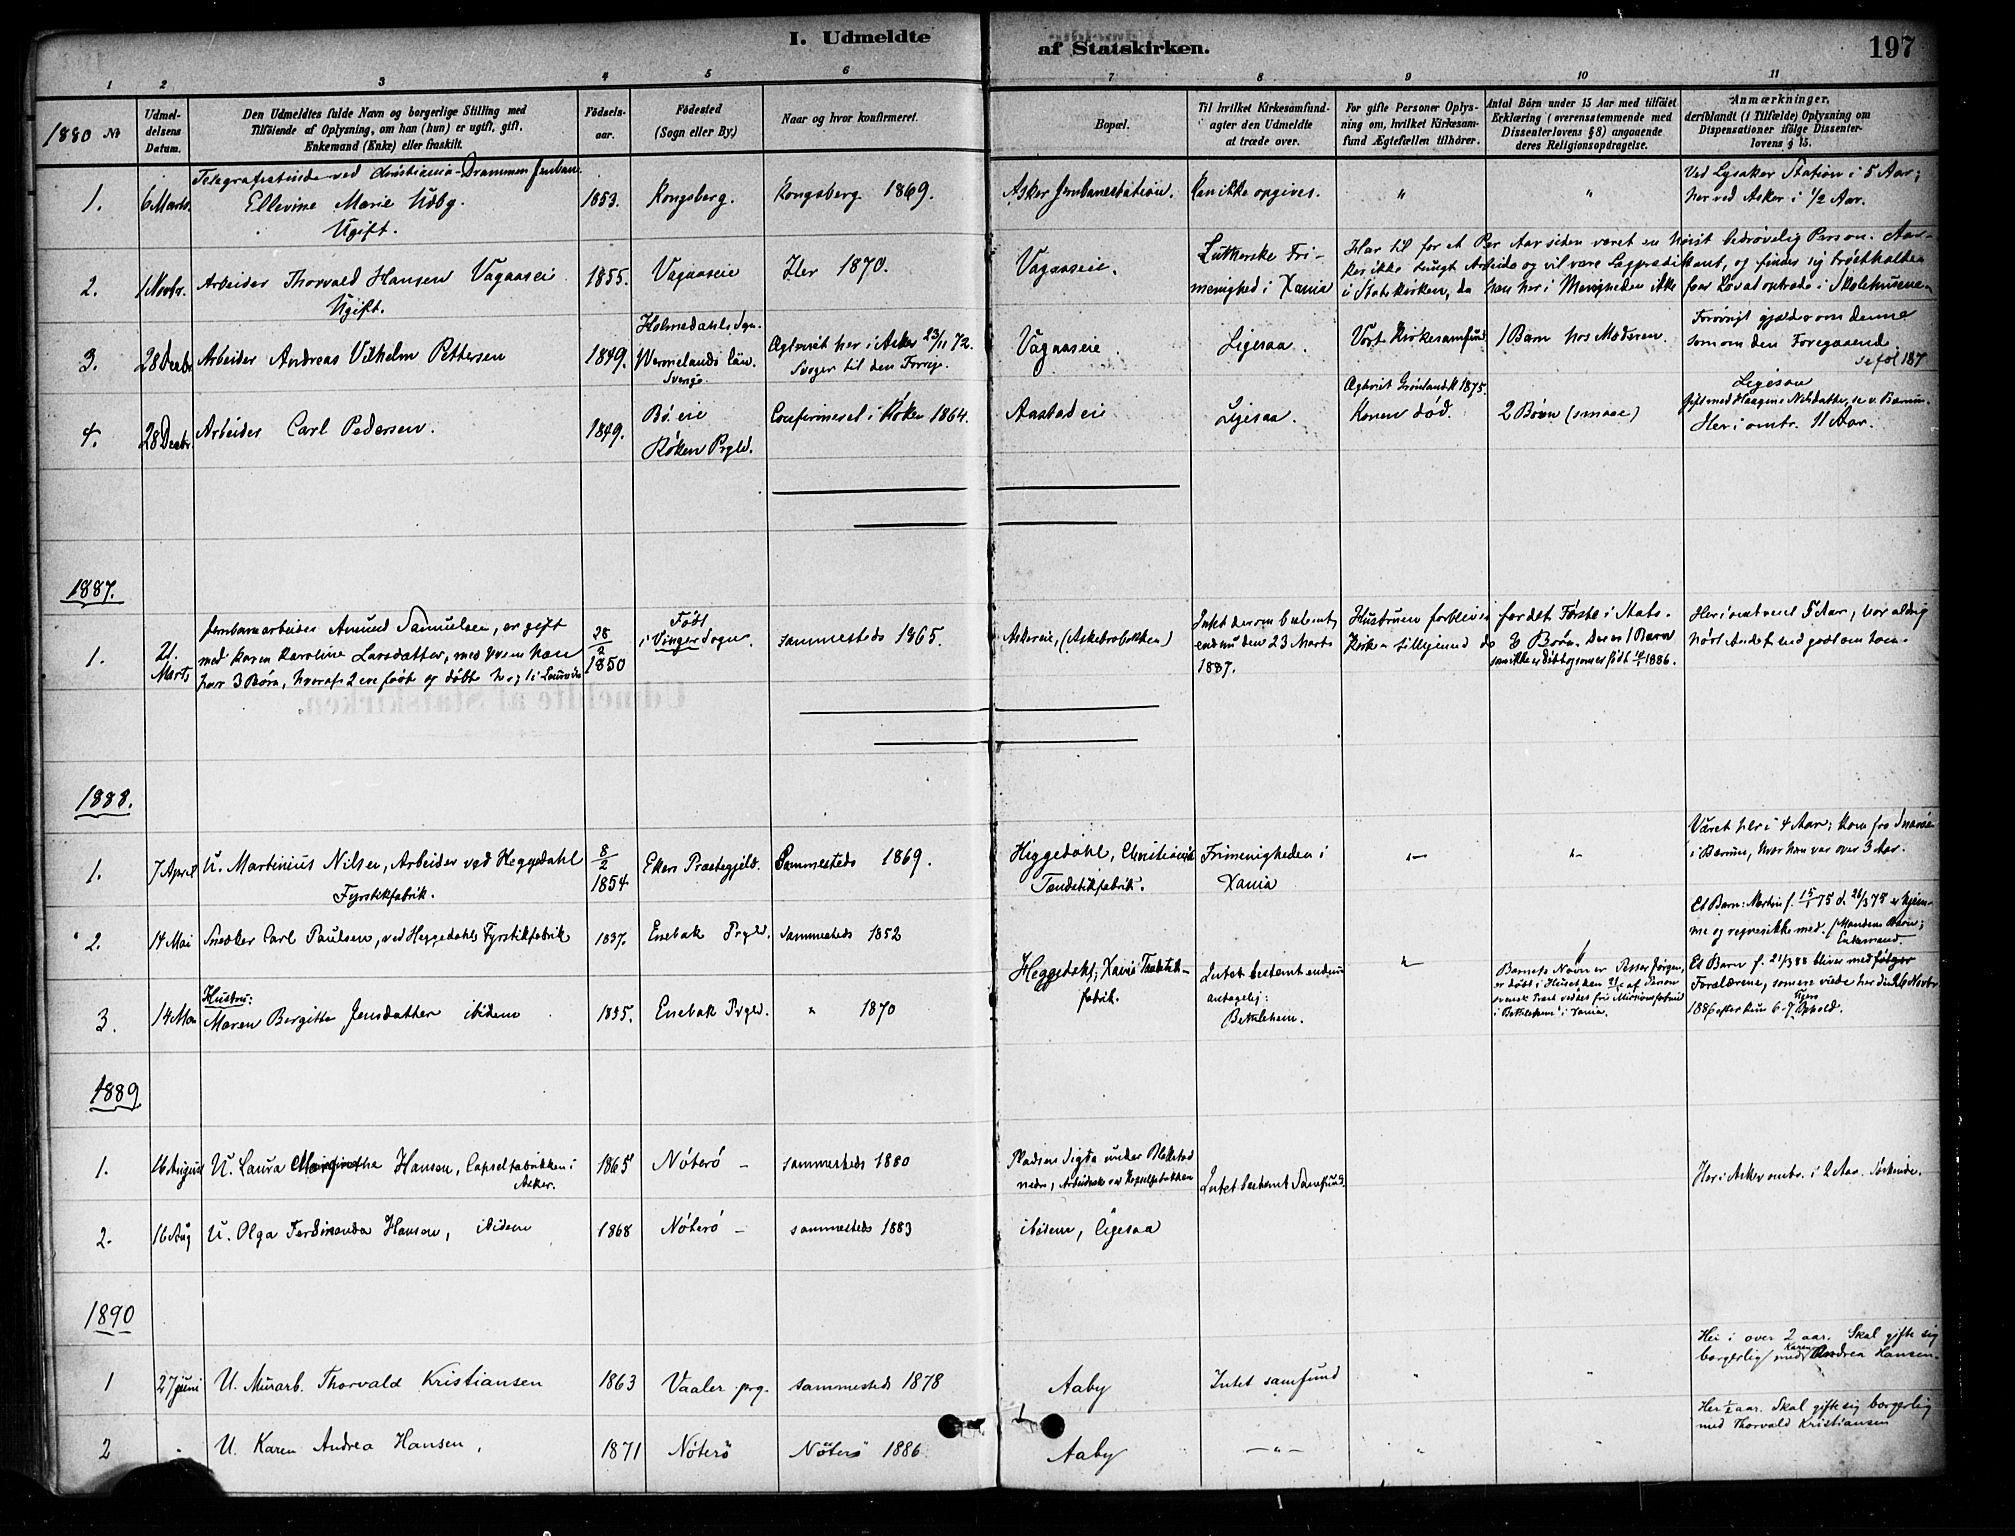 I. Udmeldte af Statskirken. 197
1 2 3 4 5 6 7 8 9 10 11
1880 No
Udmeldelsens Datum.
Den Udmeldtes fulde Navn og borgerlige Stilling med
Tilföiende af Oplysning, om han (hun) er ugift, gift,
Enkemand (Enke) eller fraskilt.
Födselsaar.
Födested
(Sogn eller By.)
Naar og hvor konfirmeret.
Bopæl.
Til hvilket Kirkesamfund
agter den Udmeldte
at træde over.
For gifte Personer Oplysning om, hvilket Kirkesamfund Ægtefællen tilhörer.
Antal Börn under 15 Aar med tilföiet
Erklæring (overensstemmende med
Dissenterlovens § 8) angaaende
deres Religionsopdragelse.
Anmærkninger,
deriblandt (i Tilfælde) Oplysning om
Dispensationer ifölge Dissenterlovens § 15.
Telegrafistinde ved Christiania-Drammen Jernbane
1. 6 Marts. Ellevine Marie Udbg. 1853. Kongsberg. Kongsberg 1869. Asker Jernbanestation. Kan ikke opgives. " "
Ugift.
Ved Lysaker Station i 5 Aar;
her ved Asker i 1/2 Aar.
2. 1 Novbr. Arbeider Thorvald Hansen Vagaaseie 1855. Vagaaseie Her 1870. Vagaaseie.
Ugift.
Lutherske Frimenighed i Xania
Har til for et Par Aar siden været en høist bedrøvelig Person.
i Statskirken, da han her i Menigheden ikke faar Lov at optræde i Skolehusene.
3. 28 Decbr Arbeider Andreas Vilhelm Pettersen 1849.
Holmedahls Sgn.
Wermelands län.
Sverige.
Ægteviet her i Asker 23/11 72.
Svoger til den Forrige.
Vagaaseie. Ligesaa. Vort Kirkesamfund 1 Barn hos Moderen.
Forøvrigt gjælder om denne
som om den Foregaaende.
se fol 187
4. 28 Decbr. Arbeider Carl Pedersen. 1849.
Bø eie
Røken Prgld.
Confirmeret i Røken 1864. Aastadeie Ligesaa.
Ægteviet Grønlands K 1875.
Konen død. 2 Børn (smaae)
Ligesaa
Her i omtr. 11 Aar.
1887.
1. 21. Marts
Jernbanearbeider Amund Samuelsen, er gift
med Karen Karoline Larsdatter, med hvem han
har 3 Børn, hvoraf 2 ere født og døbt
28/2 1850
Født
i Vinger Sogn
sammesteds 1865. Askereie, (Askebrobakken)
Intet derom bestemt
endnu den 23 Marts
1887.
Hustruen forbliver for det Første i Statskirken
3 Børn. Der er 1 Barn
som ikke er døbt og som er født 1886.
Her i omtrent 5 Aar, har aldrig
hørt Andet end godt om ham.
1888.
1. 7 April U. Martinius Nilsen, Arbeider ved Heggedahl
Fyrstikfabrik.
8/2 1854. Ekers Præstegjeld. Sammesteds 1869.
Heggedahl, Christiania
Tændstikfabrik.
Frimenigheden i
Xania
Været her i 4 Aar; kom fra Snarøe
i Bærum, hvor han var over 3 Aar.
2. 14 Mai Snedker Carl Paulsen, ved Heggedahls Fyrstikfabrik 1837. Enebak Prgld. sammesteds 1852
Enkemand.
3. 14 Mai Hustru:
Maren Birgitte Jensdatter ibidem 1855. Enebak Prgld. " 1870
Heggedahl, Xania Tændstikfabrik.
Intet bestemt endnu
antagelig:
Bethlehem.
Barnets Navn er Petter Jørgen,
i "Bethlehem" i Xania.
Et Barn f. 21/3 88 bliver med
Forældrene, som ere
1889
1. 16 August U. Laura Margrethe Hansen, Capselfabrikken i
Asker.
1865 Nøterø – sammesteds 1880
Pladsen Sigda under Blekstad
Intet bestemt Samfund. Her i Asker omtr. i 2 Aar.
2. 16 Aug U. Olga Ferdinanda Hansen, ibidem 1868 Nøterø – sammesteds 1883 ibidem, ligesaa
1890
1 27 juni U. Murarb. Thorvald Kristiansen 1863 Vaaler prg. sammesteds 1878 Aaby Intet samfund " "
Her i over 2 aar. Skal gifte sig
borgerlig med Karen Andrea Hansen.
2 " U. Karen Andrea Hansen, 1871 Nøterø Nøterø 1886. Aaby – " – " "
Her 1/2 aar. Skal gifte sig borgerlig
med Thorvald Kristiansen